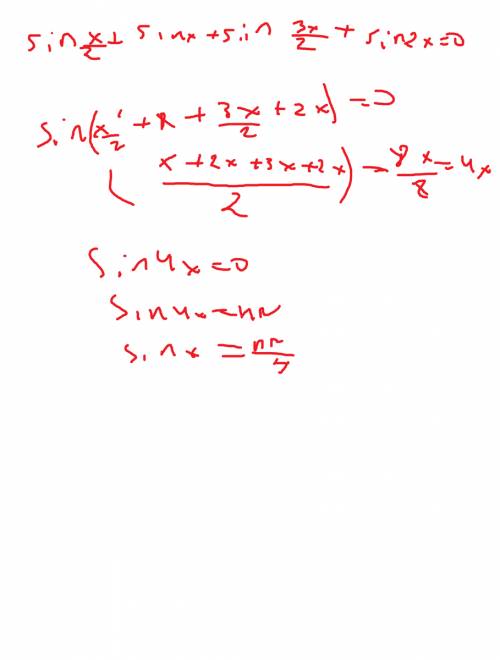 sin x/2 + sinx + sin 3x/2 + sin2x=0
sin(x/2 + x + 3x/2 + 2x) =0
( x + 2x + 3x + 2x / 2 ) = 8x/8 = 4x
sin4x=0
sin4x=nπ
sinx = nπ/4